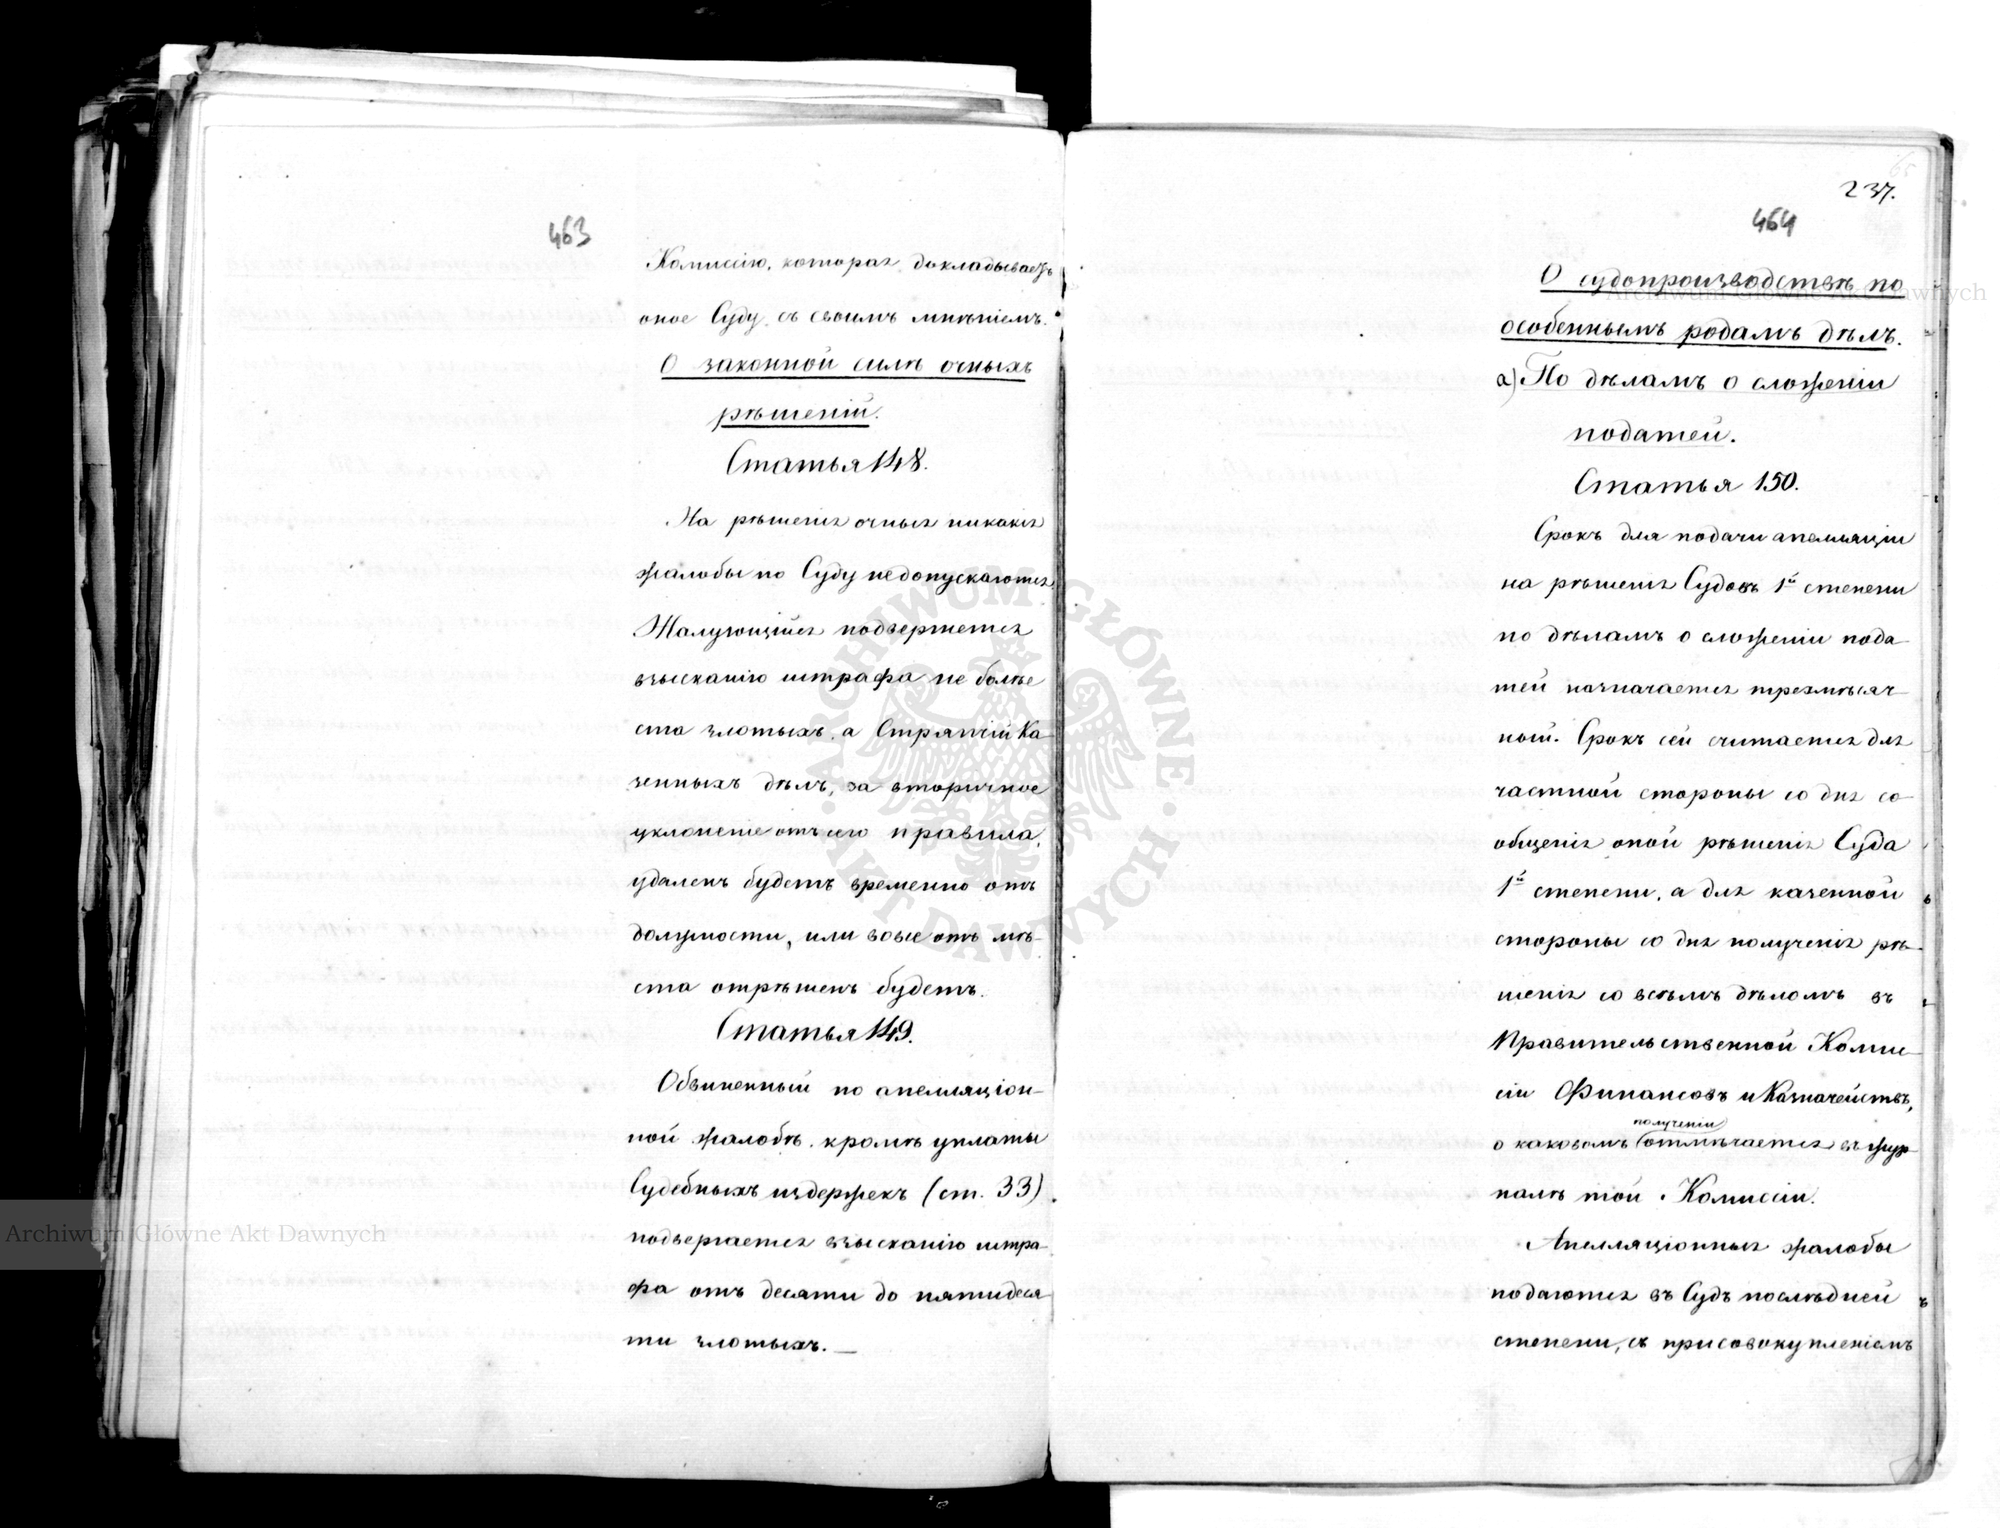 463
Комиссію, которая докладываетъ
оное Суду, съ своимъ мнѣніемъ.
О законной силѣ очныхъ
рѣшеній.
Статья 148.
На рѣшенія очныя никакія
жалобы по Суду недопускаются.
Жалующійся подвергнется
взысканію штрафа не болѣе
ста злотыхъ, а Стряпчій Ка-
зенныхъ дѣлъ, за вторичное
уклоненіе отъ сего правила,
удаленъ будетъ временно отъ
должности, или вовсе отъ мѣ-
ста отрѣшенъ будетъ.
Статья 149.
Обвиненный по апелляціон-
ной жалобѣ, кромѣ уплаты
Судебныхъ издержекъ (ст. 33)
подвергается взысканію штра-
фа отъ десяти до пятидеся
ти злотыхъ. —
237.
464
О судопроизводствѣ по
особеннымъ родамъ дѣлъ.
а) По дѣламъ о сложеніи
податей.
Статья 150.
Срокъ для подачи апелляціи
на рѣшенія Судовъ 1й степени
по дѣламъ о сложеніи пода-
тей назначается трехмѣсяч-
ной. Срокъ сей считается для
частной стороны со дня со-
общенія оной рѣшенія Суда
1й степени, а для казенной
стороны со дня полученія рѣ-
шенія со всѣмъ дѣломъ въ
Правительственной Комми-
сіи Финансовъ и Казначействъ,
получении
о каковомъ отмѣчается въ жур-
налѣ той Комиссіи.
Апелляціонныя жалобы
подаются въ Судъ послѣдней
степени, съ присовокупленіемъ
Archiwum Główne Akt Dawnych
Archiwum Główne Akt Dawnych
ARCHIWUM GŁÓWNE AKT DAWNYCH